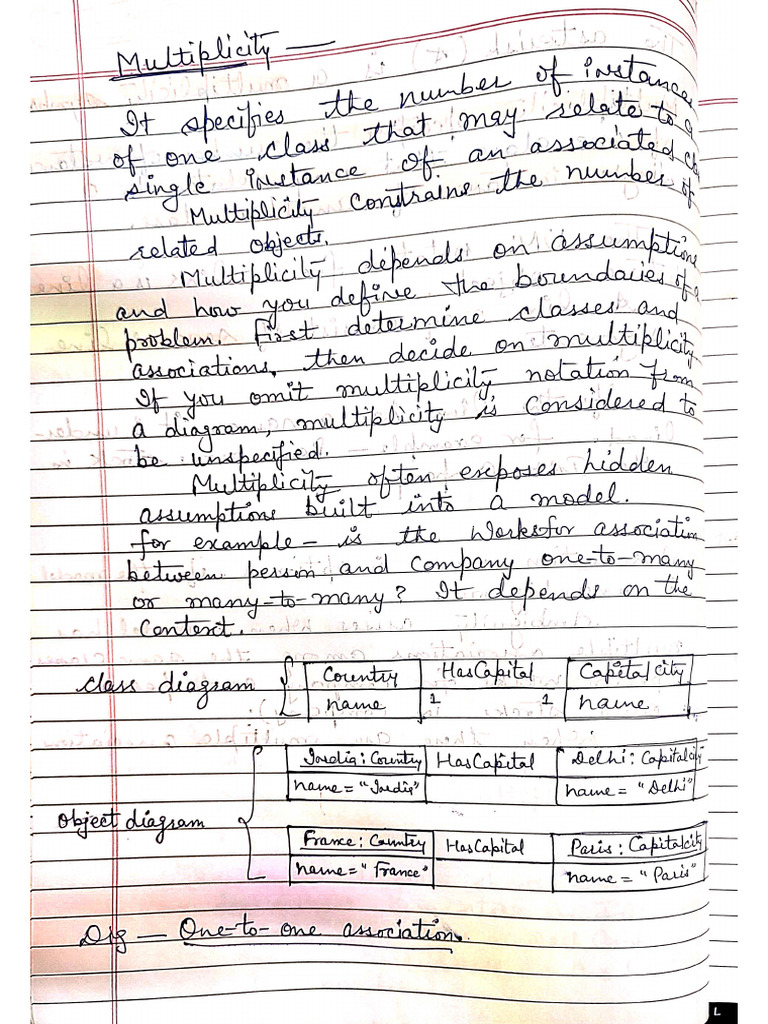 Multiplicity —
It specifies the number of instances
of one class that may relate to a
single instance of an associated
Multiplicity constrains the number of
related objects.
Multiplicity depends on assumptions
and how you define the boundaries of a
problem. First determine classes and
associations, then decide on multiplicity
If you omit multiplicity notation from
a diagram, multiplicity is considered to
be unspecified.
Multiplicity often exposes hidden
assumptions built into a model.
for example – is the Worksfor association
between person and company one-to-many
or many-to-many? It depends on the
Context.
class diagram { Country HasCapital Capital city
name 1 1 name
India: Country HasCapital Delhi: Capitalcity
name = "India" name = "Delhi"
object diagram {
France: Country HasCapital Paris: Capitalcity
name = "France" name = "Paris"
Dig — One-to-one association.
L